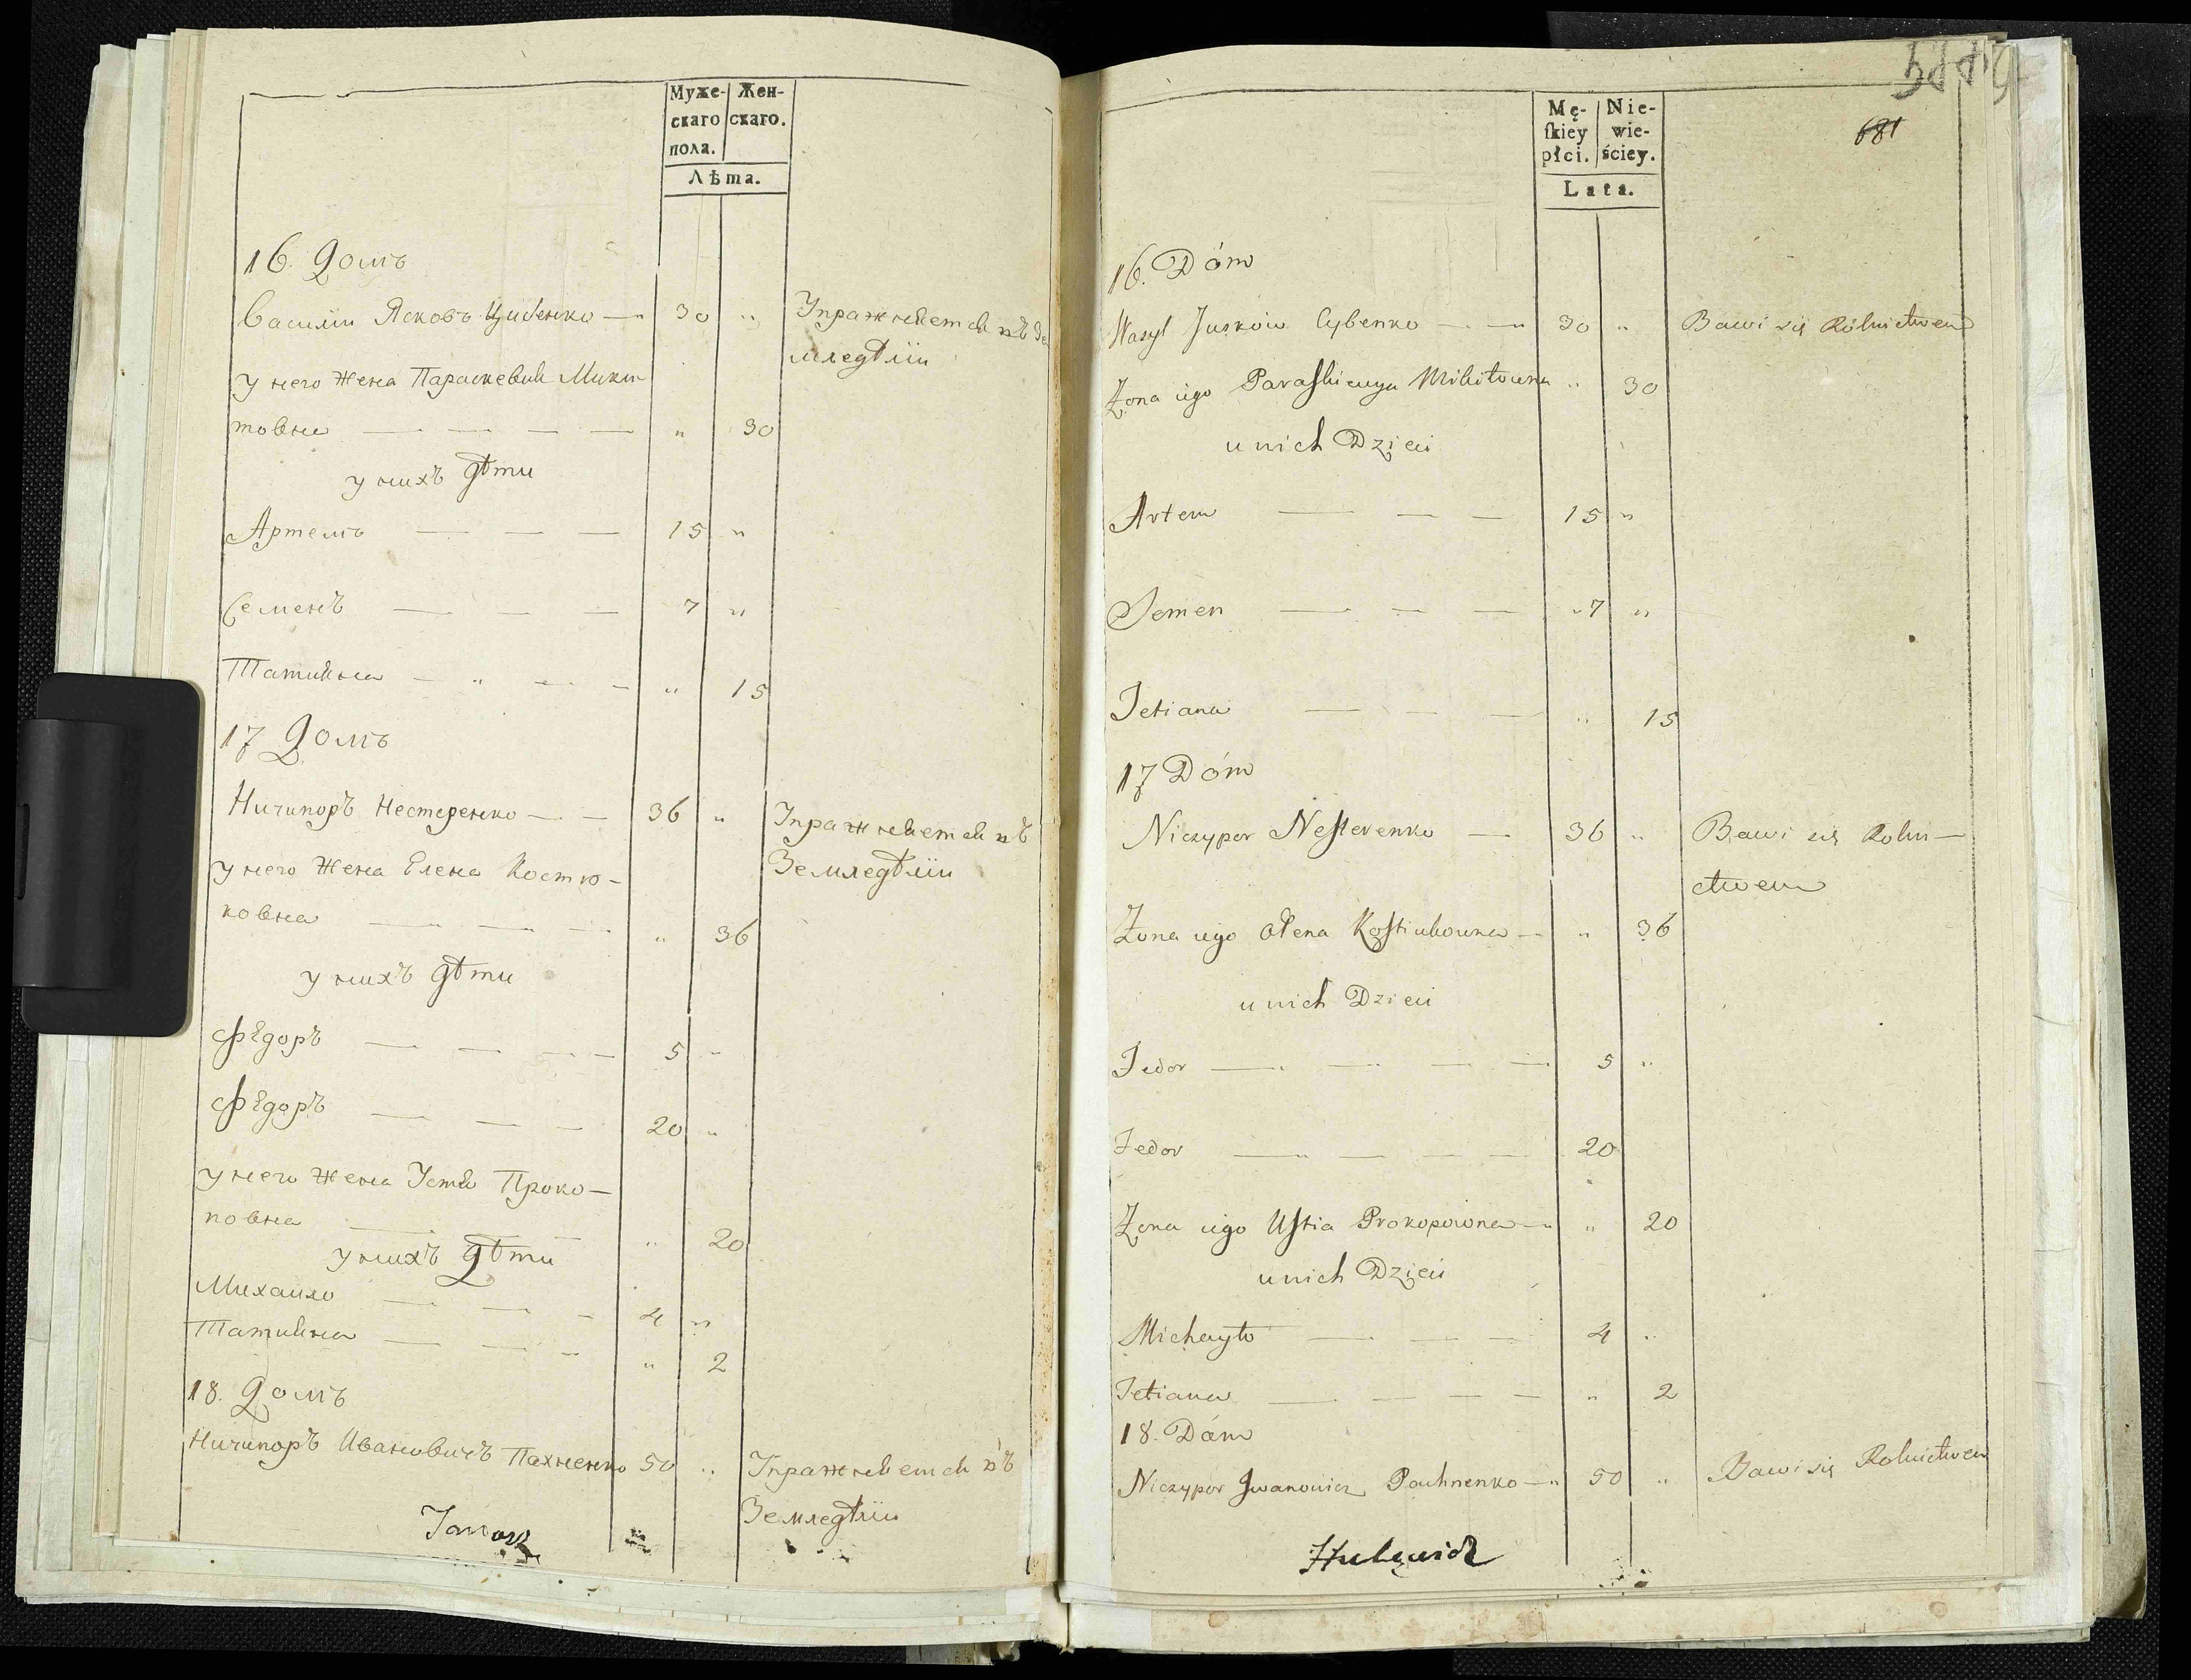 Муже- Жен-
скаго скаго.
пола.
Лѣта.
16. Домъ
Василіи Ясковъ Цибенко — 30 " Упражняется въ Зе
мледѣліи
у него Жена Параскевия Мики
товна — — — — " 30
у нихъ дѣти
Артемъ — — — 15 "
Семенъ — — — 7 "
Татияна — " — — " 15
17 Домъ
Ничипоръ Нестеренко — — 36 " Упражняется въ
Земледѣліи
у него Жена Елена Костю-
ковна — — — " 36
у нихъ дѣти
Фѣдоръ — — — — 5 "
Фѣдоръ — — — 20 "
у него Жена Устя Проко-
повна — — " 20
у нихъ дѣти
Михаило — — — 4 "
Татияна — — — " 2
18. Домъ
Ничипоръ Ивановичъ Пахненко 50 " Упражняется въ
Земледѣліи
Mę- Nie-
ſkiey wie-
płci. ściey.
Lata.
681
16. Dóm
Wasyl Juskow Cybenko — — 30 " Bawi się Rólnictwem
Żona iego Paraſkiewya Mikitowna " 30
u nich Dzieci
Artem — — — 15 "
Semen — — — " 7 "
Tetiana — — — " 15
17 Dóm
Niczypor Neſterenko — 36 " Bawi się Rolni—
ctwem
Żona iego Ołena Koſtiukowna — " 36
u nich Dzieci
Fedor — — — — 5 "
Fedor — — — — 20
Żona iego Uſtia Prokopowna — " 20
u nich Dzieci
Michayło — — — 4 "
Tetiana — — — — " 2
18. Dóm
Niczypor Iwanowicz Pachnenko — " 50 " Bawi się Rolnictwem
Hulewicz